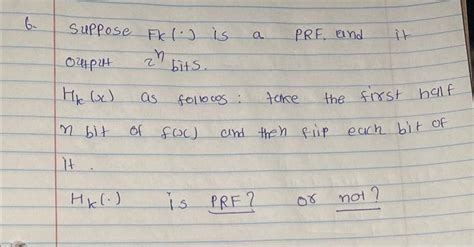 6. Suppose Fk(·) is a PRF. and it
output 2^n bits.
Hk(x) as follows: take the first half
n bit of f(x) and then flip each bit of
it.
Hk(·) is PRF? or not?